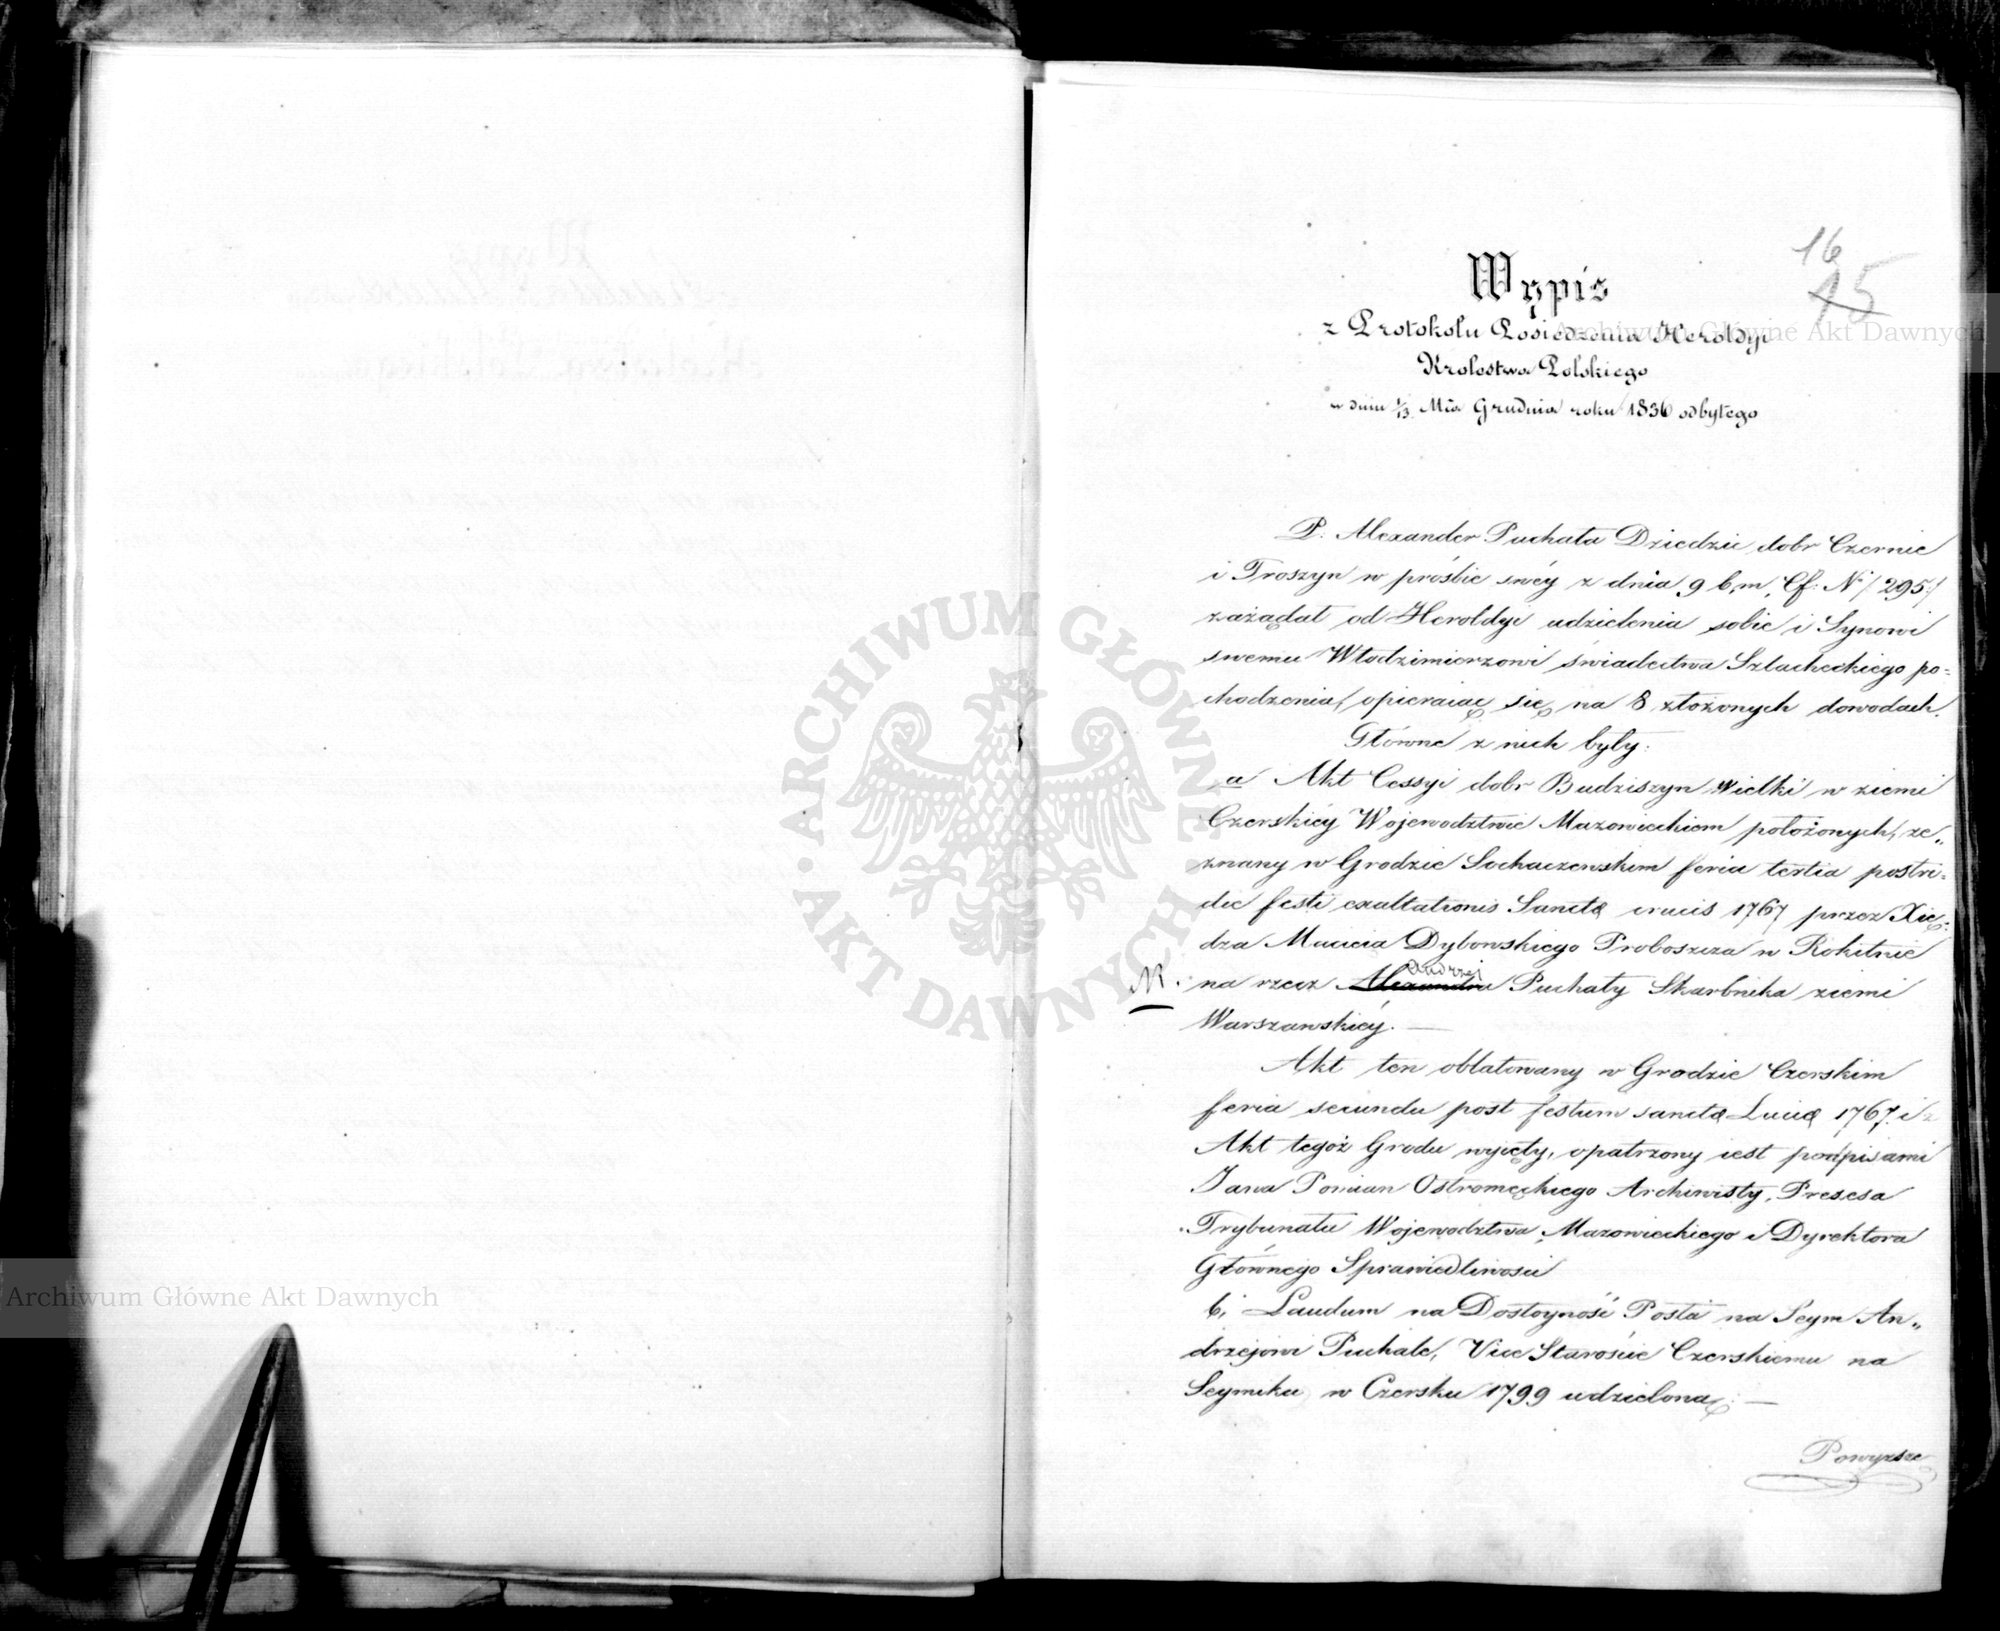 16
15
Wypis
z Protokołu Posiedzenia Heroldyi
Krolestwa Polskiego
w dniu 1/13 Mca Grudnia roku 1836 odbytego
P. Alexander Puchała Dziedzic dobr Czernic
i Troszyn w prośbie swéy z dnia 9 b.m.
zażądał od Heroldyi udzielenia sobie i Synowi
swemu Włodzimierzowi świadectwa Szlacheckiego po=
chodzenia, opieraiąc się na 8 złożonych dowodach.
Główne z nich były:
a Akt Cessyi dobr Budziszyn wielki w ziemi
Czerskiéy Wojewodztwie Mazowieckiem położonych, ze„
znany w Grodzie Sochaczewskim feria tertia postri=
die festi exaltationis Sanctæ crucis 1767 przez Xię=
dza Macieia Dybowskiego Proboszcza w Rokitnie
Andrzej
na rzecz Alexandra Puchały Skarbnika ziemi
Warszawskiéy. —
Akt ten oblatowany w Grodzie Czerskim
feria secunda post festum sanctæ Luciæ 1767. i z
Akt tegoż Grodu wyięty, opatrzony iest podpisami
Jana Pomian Ostromęckiego Archiwisty, Prezesa
Trybunału Wojewodztwa Mazowieckiego i Dyrektora
Głównego Sprawiedliwości
b, Laudum na Dostoyność Posła na Seym An„
drzejowi Puchale, Vice Staroście Czerskiemu na
Seymiku w Czersku 1799 udzielona: —
Powyższe
Archiwum Główne Akt Dawnych
Archiwum Główne Akt Dawnych
ARCHIWUM GŁÓWNE • AKT DAWNYCH •